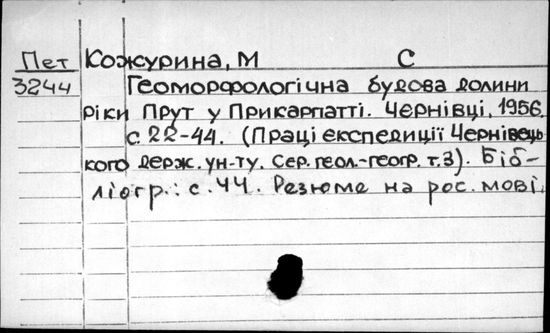 Пет Кожурина, М С
3244 Геоморфологічна будова долини
ріки Прут у Прикарпатті. Чернівці, 1956
с. 22-44. (Праці експедиції Чернівець-
кого держ. ун-ту. Сер. геол.-геогр. т. 3). Біб-
ліогр.: с. 44. Резюме на рос. мові.